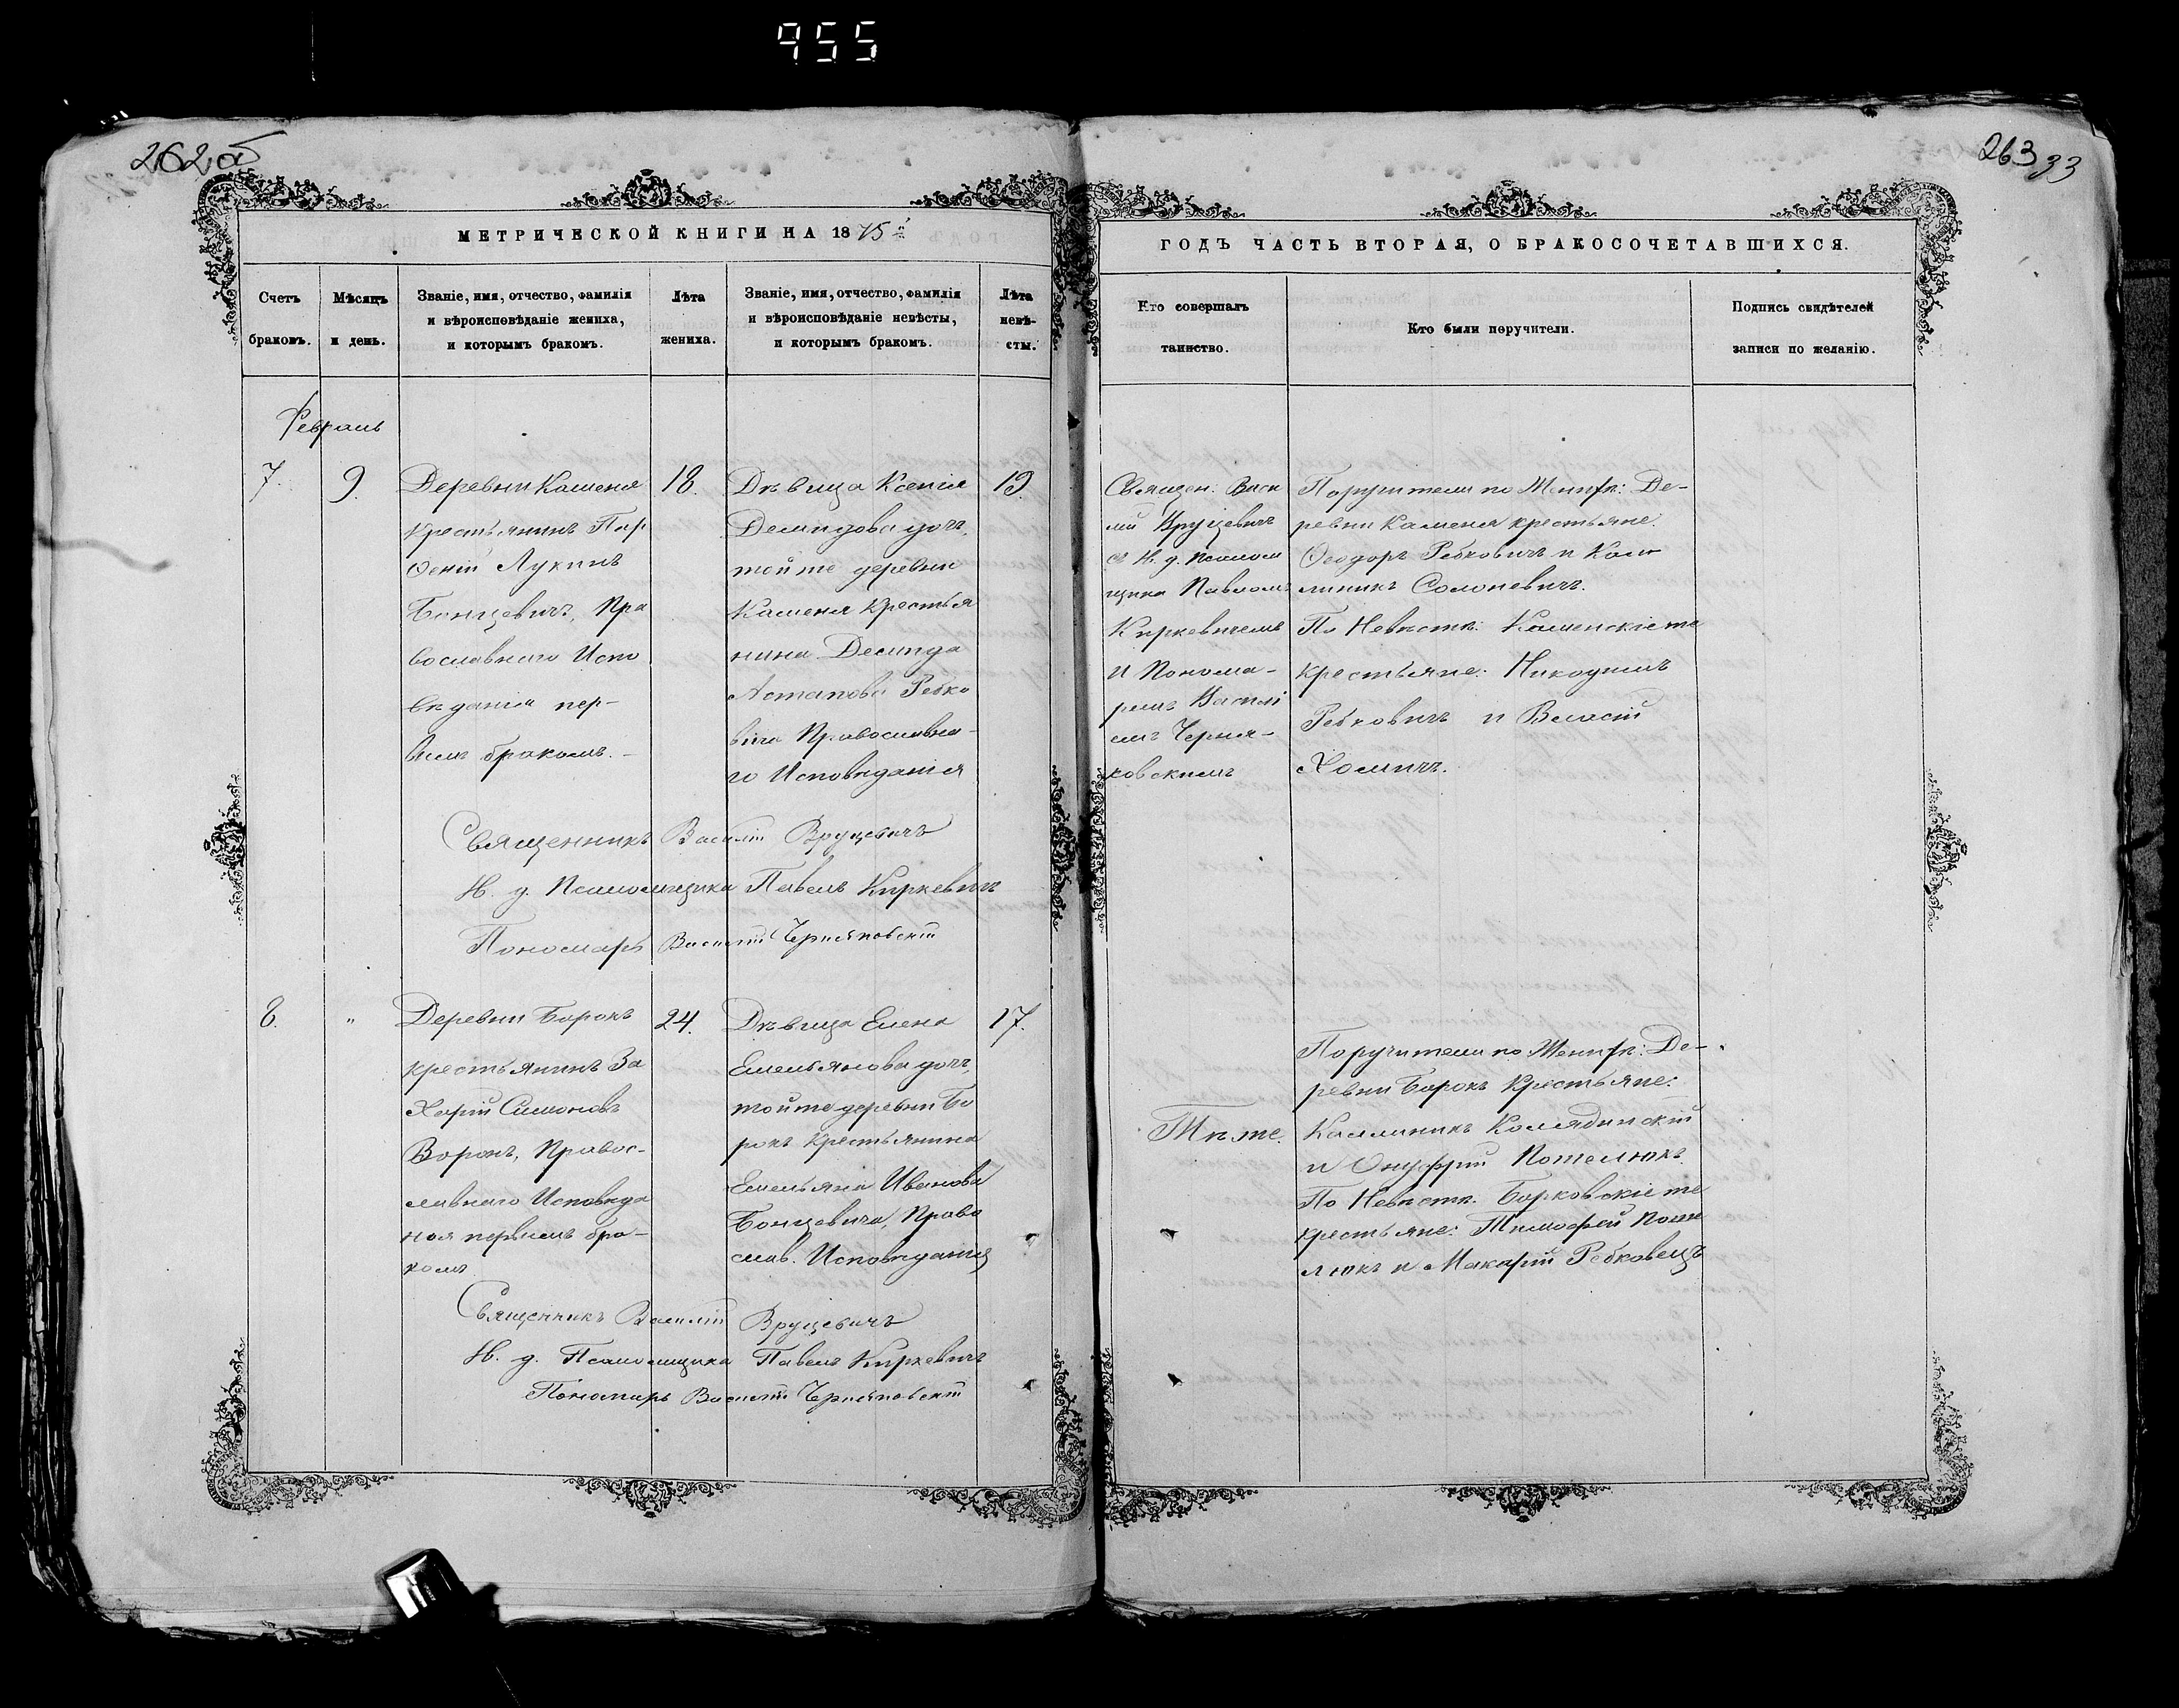 955
262 об
263 33
МЕТРИЧЕСКОЙ КНИГИ НА 1875
ГОДЪ ЧАСТЬ ВТОРАЯ, О БРАКОСОЧЕТАВШИХСЯ.
Счетъ
браковъ.
Мѣсяцъ
и день.
Званіе, имя, отчество, фамилія
и вѣроисповѣданіе жениха,
и которымъ бракомъ.
Лѣта
жениха.
Званіе, имя, отчество, фамилія
и вѣроисповѣданіе невѣсты,
и которымъ бракомъ.
Лѣта
невѣ-
сты.
Кто совершалъ
таинство.
Кто были поручители.
Подпись свидѣтелей
записи по желанію.
Февраль
7.
9.
Деревни Каменя
крестьянинъ Пар
ѳеній Лукинъ
Бонцевичъ, Пра
вославнаго Испо
вѣданія пер-
вымъ бракомъ. -
18.
Дѣвица Ксенія
Демидова дочь,
тойже деревни
Каменя крестья
нина Демида
Астапова Ребко
вича Православна-
го Исповѣданія
19.
Священ. Васи
лій Вруцевичъ
съ И. д. Псалом
щика Павломъ
Киркевичемъ
и Понома-
ремъ Василі
емъ Черня-
ковскимъ
Поручители по Женихѣ: Де-
ревни Каменя крестьяне.
Ѳеодоръ Ребковичъ и Кал
линикъ Солоневичъ.
По Невѣстѣ: Каменскіе же
крестьяне: Никодимъ
Ребковичъ и Власій
Хомичъ.
Священникъ Василій Вруцевичъ
И. д. Псаломщика Павелъ Киркевичъ
Пономарь Василій Черняковскій
8.
"
Деревни Борокъ
крестьянинъ За
харій Симоновъ
Воронъ, Правос-
лавнаго Исповѣда
нія первымъ бра-
комъ
24.
Дѣвица Елена
Емельянова дочь,
тойже деревни Бо
рокъ крестьянина
Емельяна Иванова
Бонцевича, Право
слав. Исповѣданія
17.
Тѣ же.
Поручители по Женихѣ: Де-
ревни Борокъ Крестьяне:
Каллиникъ Колядинскій
и Онуфрій Потелюкъ.
По Невѣстѣ. Борковскіе же
крестьяне: Тимофей Поте
люкъ и Макарій Ребковецъ
Священникъ Василій Вруцевичъ
И. д. Псаломщика Павелъ Киркевичъ
Пономарь Василій Черняковскій